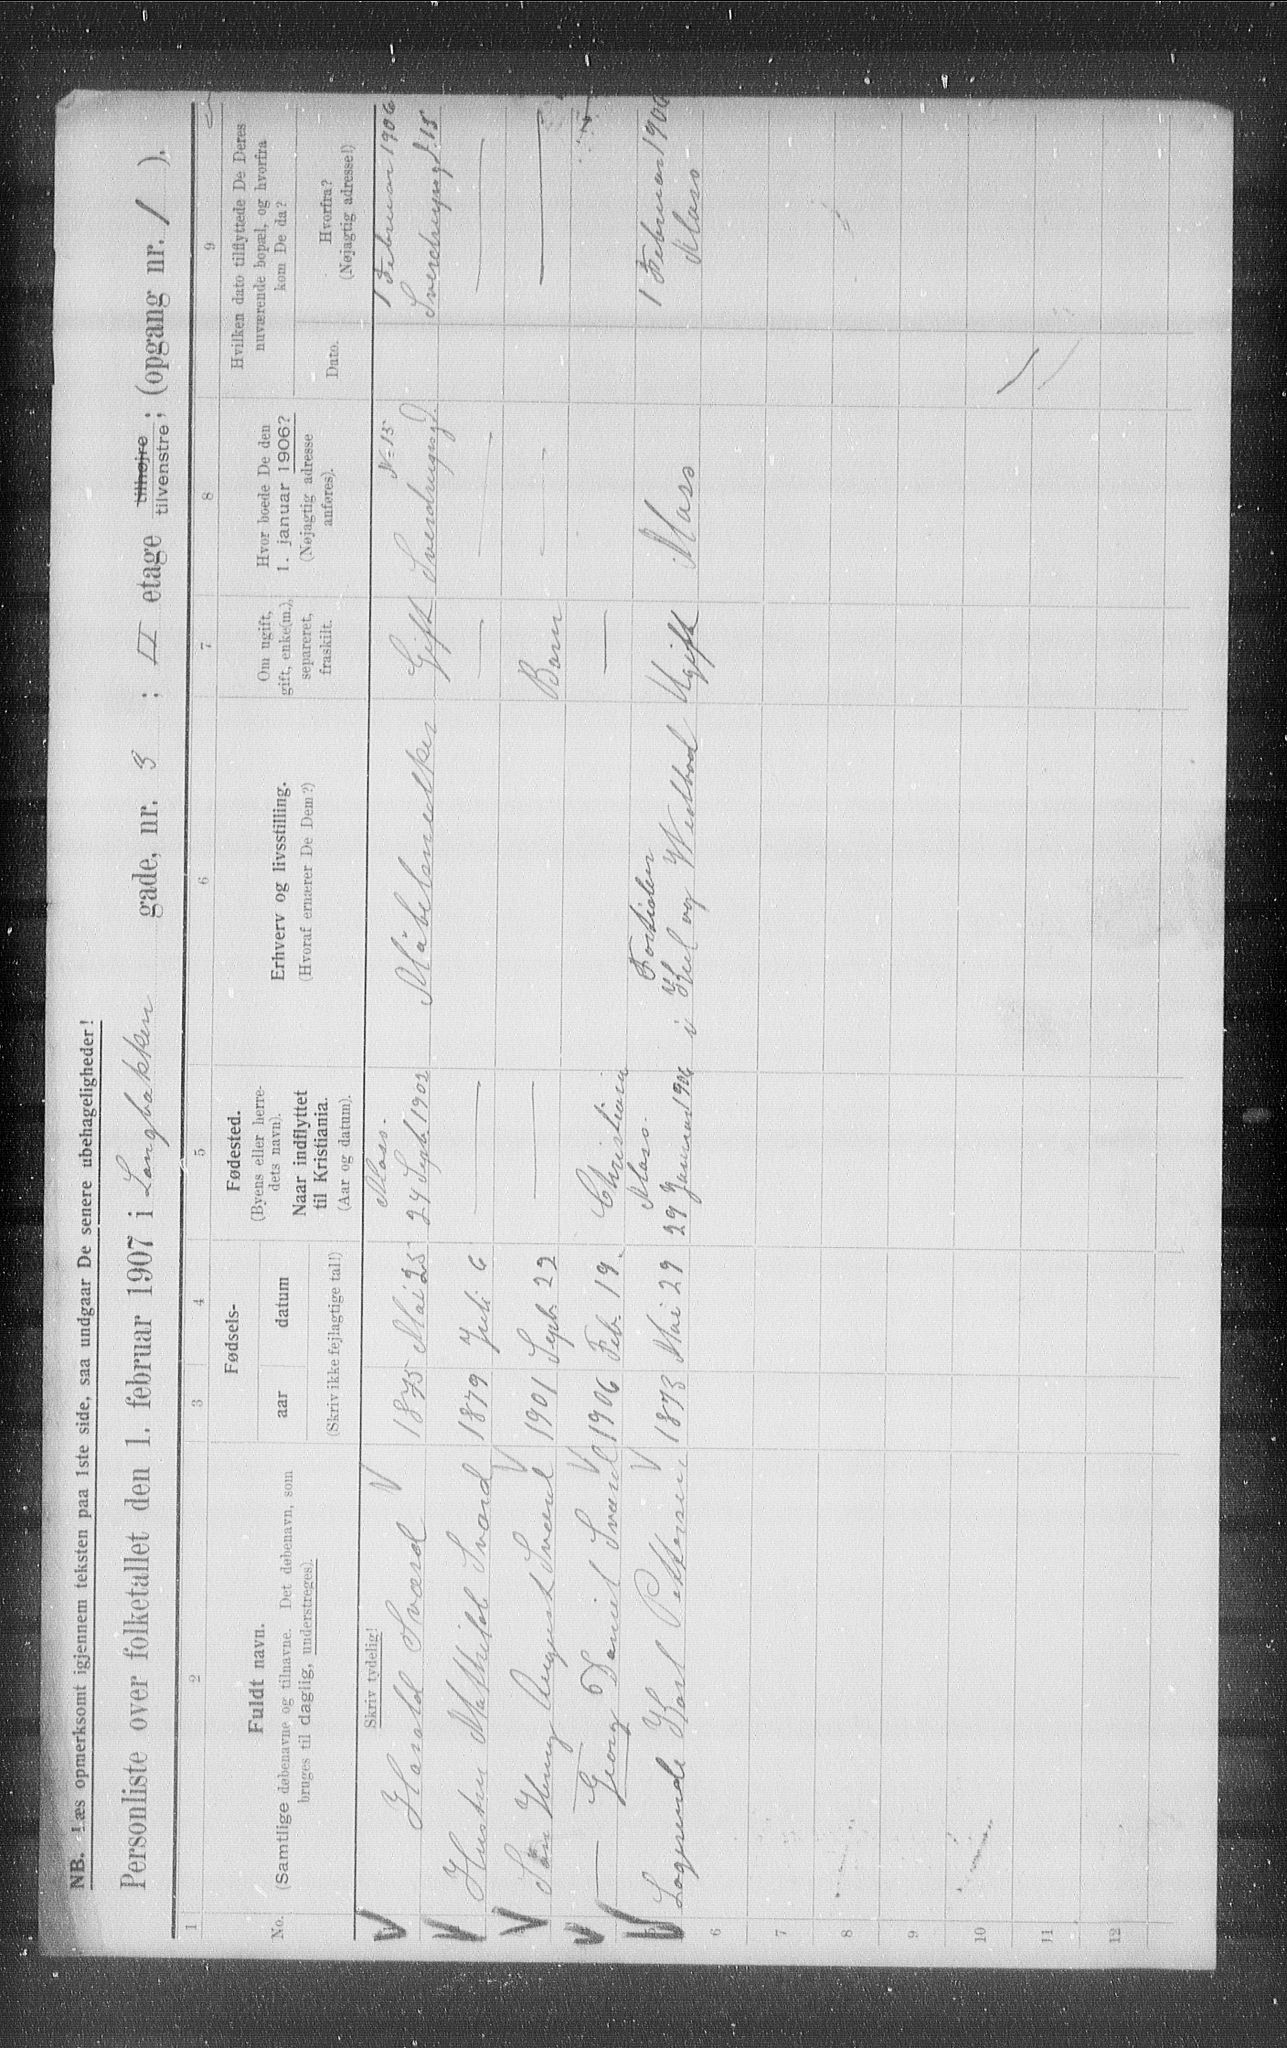 NB. Læs opmerksomt igjennem teksten paa 1ste side, saa undgaar De senere ubehageligheder!
Personliste over folketallet den 1. februar 1907 i Langbakken gade, nr. 3 ; II etage tilhøjre tilvenstre; (opgang nr. 1).
1 2 3 4 5 6 7 8 9
No.
Fuldt navn.
(Samtlige døbenavne og tilnavne. Det døbenavn, som
bruges til daglig, understreges).
Fødsels-
aar datum
(Skriv ikke fejlagtige tal!)
Fødested.
(Byens eller herre-
dets navn).
Naar indflyttet
til Kristiania.
(Aar og datum).
Erhverv og livsstilling.
(Hvoraf ernærer De Dem?)
Om ugift,
gift, enke(m.),
separeret,
fraskilt.
Hvor boede De den
1. januar 1906?
(Nøjagtig adresse
anføres).
Hvilken dato tilflyttede De Deres
nuværende bopæl, og hvorfra
kom De da?
Dato.
Hvorfra?
(Nøjagtig adresse!)
Skriv tydelig!
Moss. No 15 1 Februar 1906
Harald Sværd V 1875 Mai 25 24 Septb. 1902 Gift Sverdrupsgd.
Hustru Mathild Sværd 1879 Juli 6 — — — —
Søn Henry August Sværd V 1901 Septb. 22 — Barn — —
— Georg Daniel Sværd V 1906 Feb. 19. Christiania —
Moss. 1 Februar 1906
Logerende Karl Pettersen V 1873 Mai 29 29 Januar 1906 i Kul og Vedbod Ugift Moss Moss
6
7
8
9
10
11
12